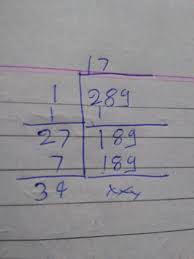 17
1 289
1 1
27 189
7 189
34 xxx